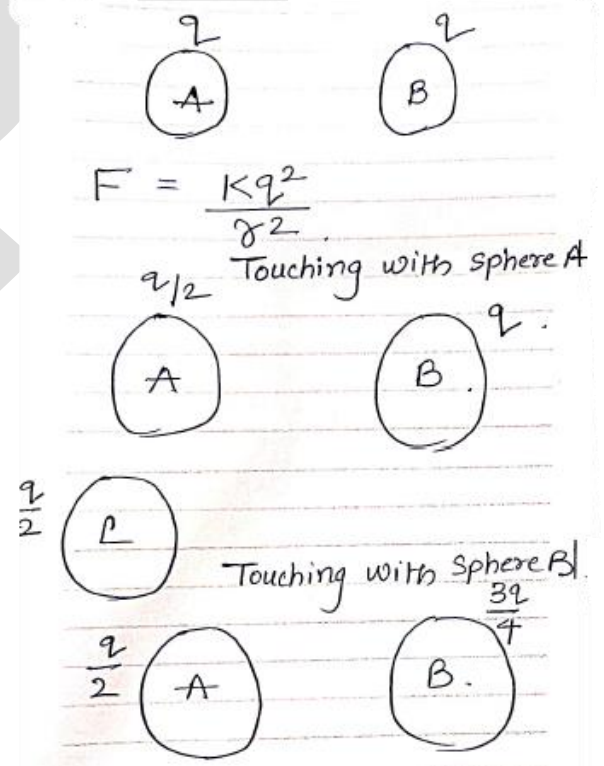 q q
A B
F = Kq²
r²
Touching with sphere A
q/2 q.
A B.
q
2
C
Touching with sphere B
3q
4
q
2
A B.